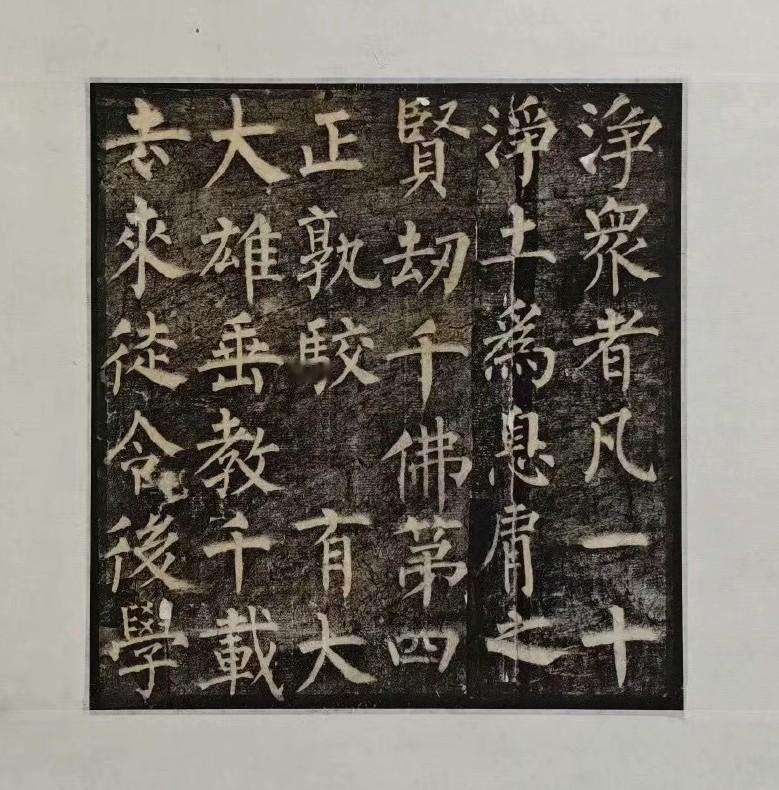 淨眾者凡一十
淨土為息肩之
賢劫千佛第四
正孰駮有大
大雄垂教千載
去來徒令後學